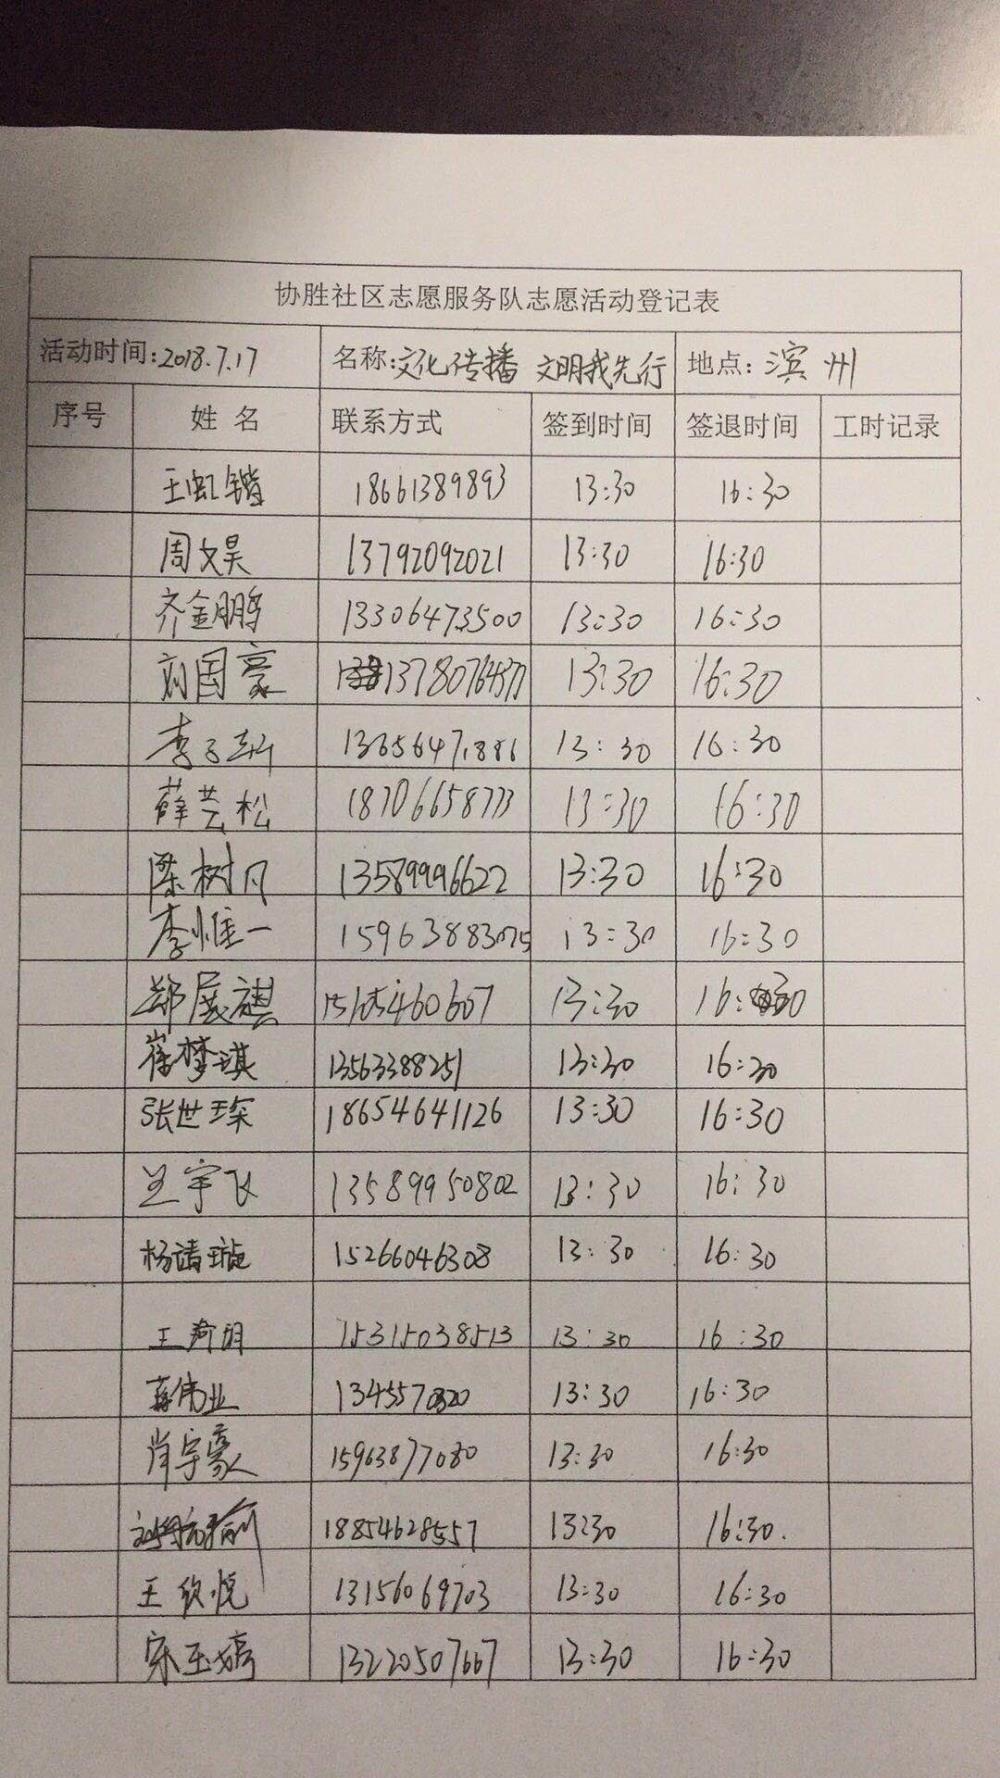 协胜社区志愿服务队志愿活动登记表
活动时间:2018.7.17 名称:文化传播 文明我先行 地点: 滨州
序号 姓名 联系方式 签到时间 签退时间 工时记录
王虹锴 18661389893 13:30 16:30
周文昊 13792092021 13:30 16:30
齐金鹏 13306473500 13:30 16:30
刘国豪 13:30 16:30
李子 13:30 16:30
薛芸松 18706658773 13:30 16:30
梁树凡 13589996622 13:30 16:30
李惟一 15963883075 13:30 16:30
郑展祺 13:30 16:30
崔梦琪 13563388251 13:30 16:30
张世琛 18654641126 13:30 16:30
兰宇飞 13589950802 13:30 16:30
杨清璇 15266046308 13:30 16:30
王 15315038513 13:30 16:30
蒋伟业 13:30 16:30
肖宇豪 15963877080 13:30 16:30
18854628557 13:30 16:30.
王欣悦 13156069703 13:30 16:30
宋玉婷 13220507667 13:30 16:30